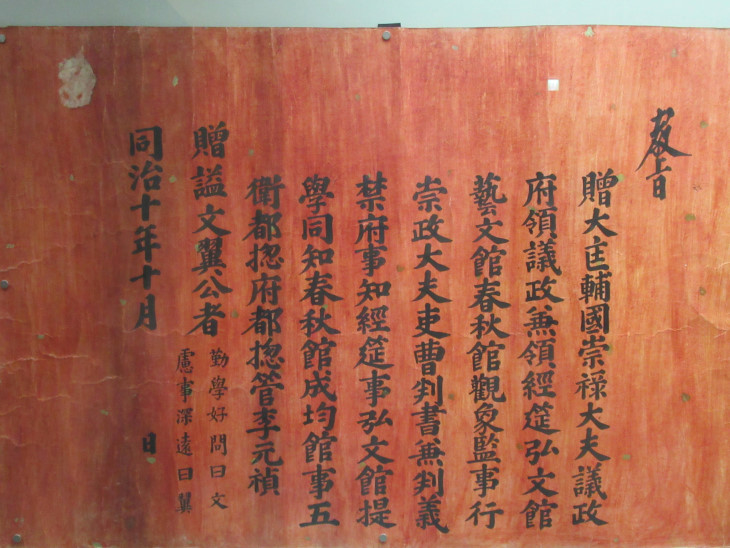 敎旨
贈大匡輔國崇祿大夫議政
府領議政兼領經筵弘文館
藝文館春秋館觀象監事行
崇政大夫吏曹判書兼判義
禁府事知經筵事弘文館提
學同知春秋館成均館事五
衛都摠府都摠管李元禎
贈謚文翼公者
勤學好問曰文
慮事深遠曰翼
同治十年十月 日